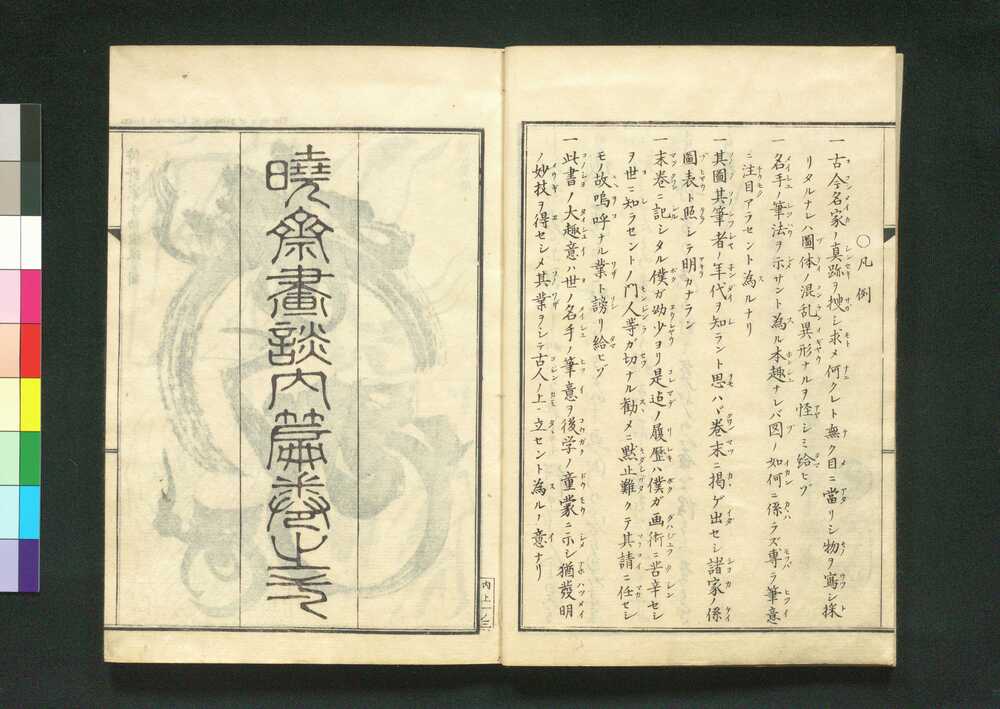 〇凡例
一古今名家ノ真跡ヲ捜シ求メ何クレト無ク目ニ當リシ物ヲ寫シ採
リタルナレハ圖体ノ混乱異形ナルヲ怪シミ給ヒゾ
一名手ノ筆法ヲ示サント為ル本趣ナレバ図ノ如何ニ係ラズ専ラ筆意
ニ注目アラセント為ルナリ
一其圖其筆者ノ年代ヲ知ラント思ハヾ巻末ニ掲ゲ出セシ諸家ノ係
圖表ト照シテ明カナラン
一末巻ニ記シタル僕ガ幼少ヨリ是迠ノ履歴ハ僕ガ画術ニ苦辛セシ
ヲ世ニ知ラセントノ門人等ガ切ナル勧メニ黙止難クテ其請ニ任セシ
モノ故嗚呼ナル業ト謗リ給ヒゾ
一此書ノ大趣意ハ世ノ名手ノ筆意ヲ後学ノ童蒙ニ示シ猶發明
ノ妙技ヲ得セシメ其業ヲシテ古人ノ上ニ立セント為ルノ意ナリ
暁齋畫談内篇巻之上
内上一ノ三